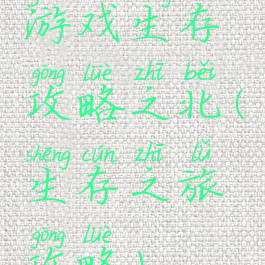 游戏生存
gōng lüè zhī běi
攻略之北(
shēng cún zhī lǚ
生存之旅
gōng lüè
攻略)